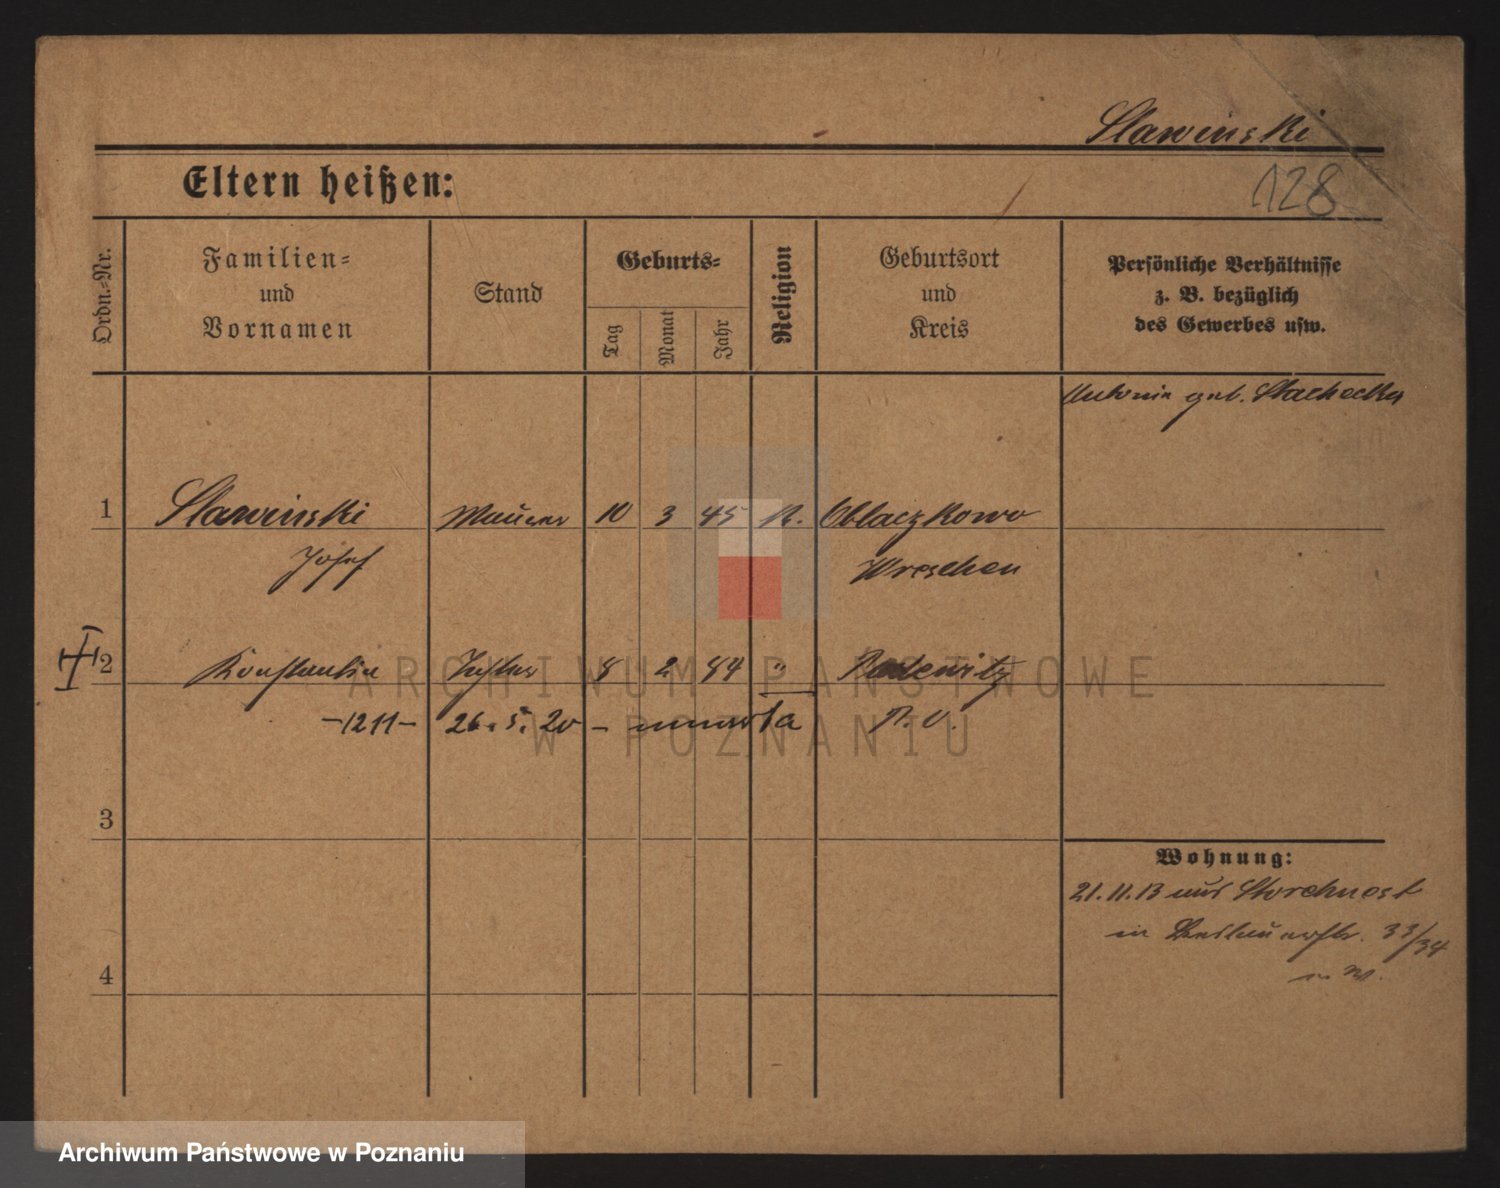 Slawinski
Eltern heißen:
128
Ordn.-Nr.
Familien-
und
Vornamen
Stand
Geburts-
Tag
Monat
Jahr
Religion
Geburtsort
und
Kreis
Persönliche Verhältnisse
z. B. bezüglich
des Gewerbes usw.
Antonie geb. Stachecka
1 Slawinski Maurer 10 3 45 K. Oblaczkowo
Josef Wreschen
2 Konstantin 8 2 84 "
-1211- 26.5.20 - umarła
3
4
Wohnung:
21.11.13 aus Storchnest
in 33/34
ARCHIWUM PAŃSTWOWE
W POZNANIU
Archiwum Państwowe w Poznaniu